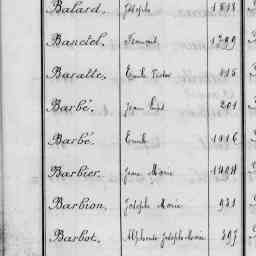 Balard, Joseph
Banctel, 1299
Baratte, Emile Victor 415
Barbé, Jean 201
Barbé, Emile 1116
Barbier, Jean Marie 1404
Barbion, Joseph Marie 931
Barbot, Alphonse Joseph Marie 397